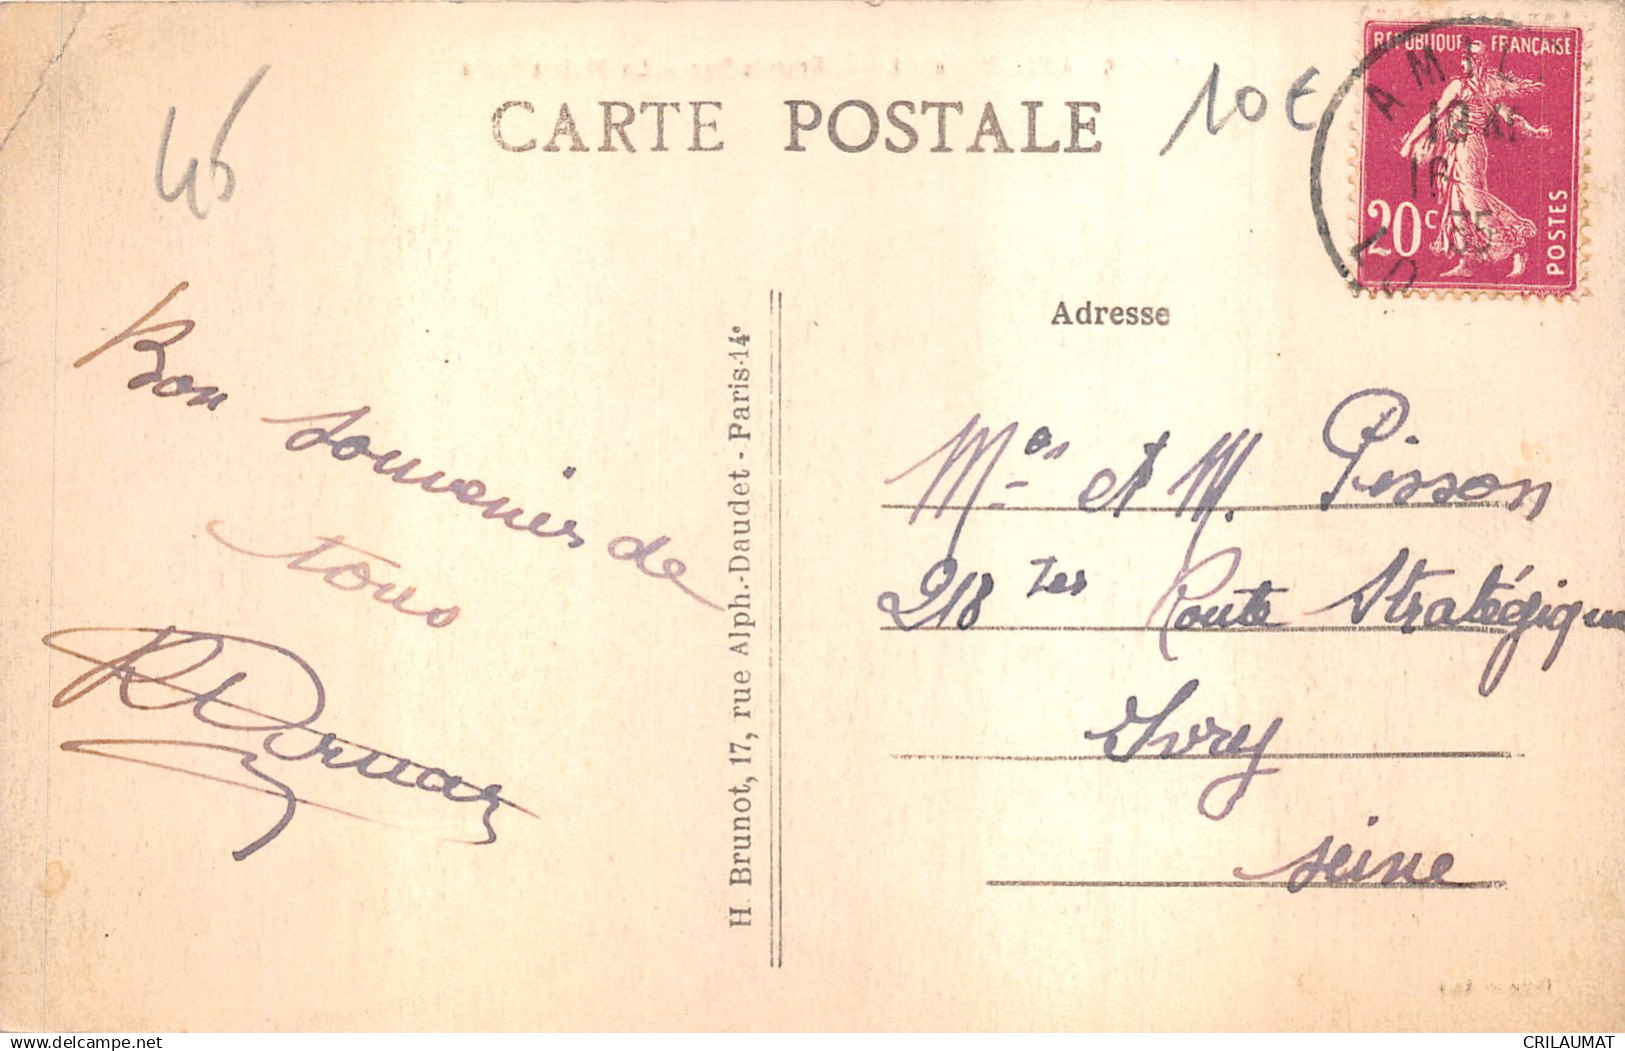 CARTE POSTALE
45
10€
RÉPUBLIQUE FRANÇAISE
20c
POSTES
AMILLY
18
35
LO
Adresse
Bon souvenirs de
tous
H. Brunot, 17, rue Alph.-Daudet - Paris-14e
Mes et M. Pisson
218 Route Stratégique
Ivry
Seine
delcampe.net
CRILAUMAT